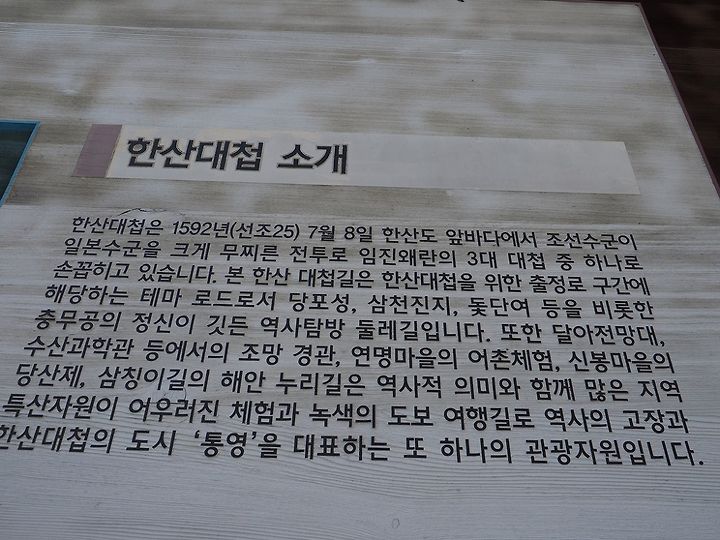 한산대첩 소개
한산대첩은 1592년(선조25) 7월 8일 한산도 앞바다에서 조선수군이
일본수군을 크게 무찌른 전투로 임진왜란의 3대 대첩 중 하나로
손꼽히고 있습니다. 본 한산 대첩길은 한산대첩을 위한 출정로 구간에
해당하는 테마 로드로서 당포성, 삼천진지, 돛단여 등을 비롯한
충무공의 정신이 깃든 역사탐방 둘레길입니다. 또한 달아전망대,
수산과학관 등에서의 조망 경관, 연명마을의 어촌체험, 신봉마을의
당산제, 삼칭이길의 해안 누리길은 역사적 의미와 함께 많은 지역
특산자원이 어우러진 체험과 녹색의 도보 여행길로 역사의 고장과
한산대첩의 도시 ‘통영’을 대표하는 또 하나의 관광자원입니다.